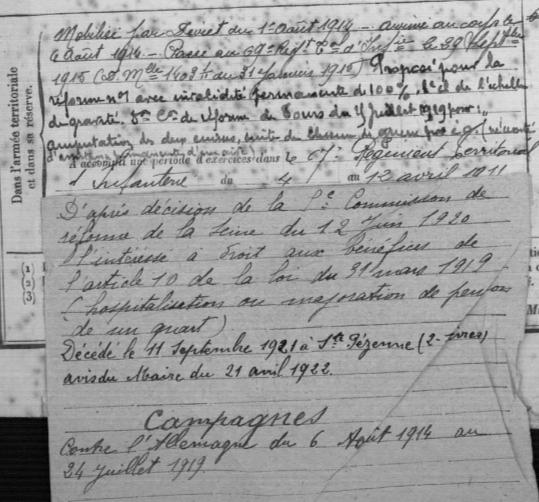 Mobilisé par Décret du 1er Août 1914 - arrivé au corps le
6 Août 1914 - Passé au 69e Régt Tal d'Infie le 29 Septbre
1915 (D. Mlle du 31 Janvier 1915) Proposé pour la
réforme n°1 avec invalidité permanente de 100%, de l'échelle
de gravité. Con de réforme de Tours du Juillet 1919 pour :
amputation des deux cuisses, suites de blessure de guerre
Dans l'armée territoriale
et dans sa réserve.
A accompli une période d'exercices dans le 67e Régiment territorial
d'Infanterie du 4 au 12 avril 1911
D'après décision de la Commission de
réforme de la Seine du 12 Juin 1920
l'intéressé à droit aux bénéfices de
l'article 10 de la loi du 31 mars 1919
(hospitalisation ou majoration de pension
de un quart)
Décédé le 11 Septembre 1921 à Ste Pézenne (2-sèvres)
avis du Maire du 21 avril 1922.
Campagnes
Contre l'Allemagne du 6 Août 1914 au
24 Juillet 1919
1
2
3